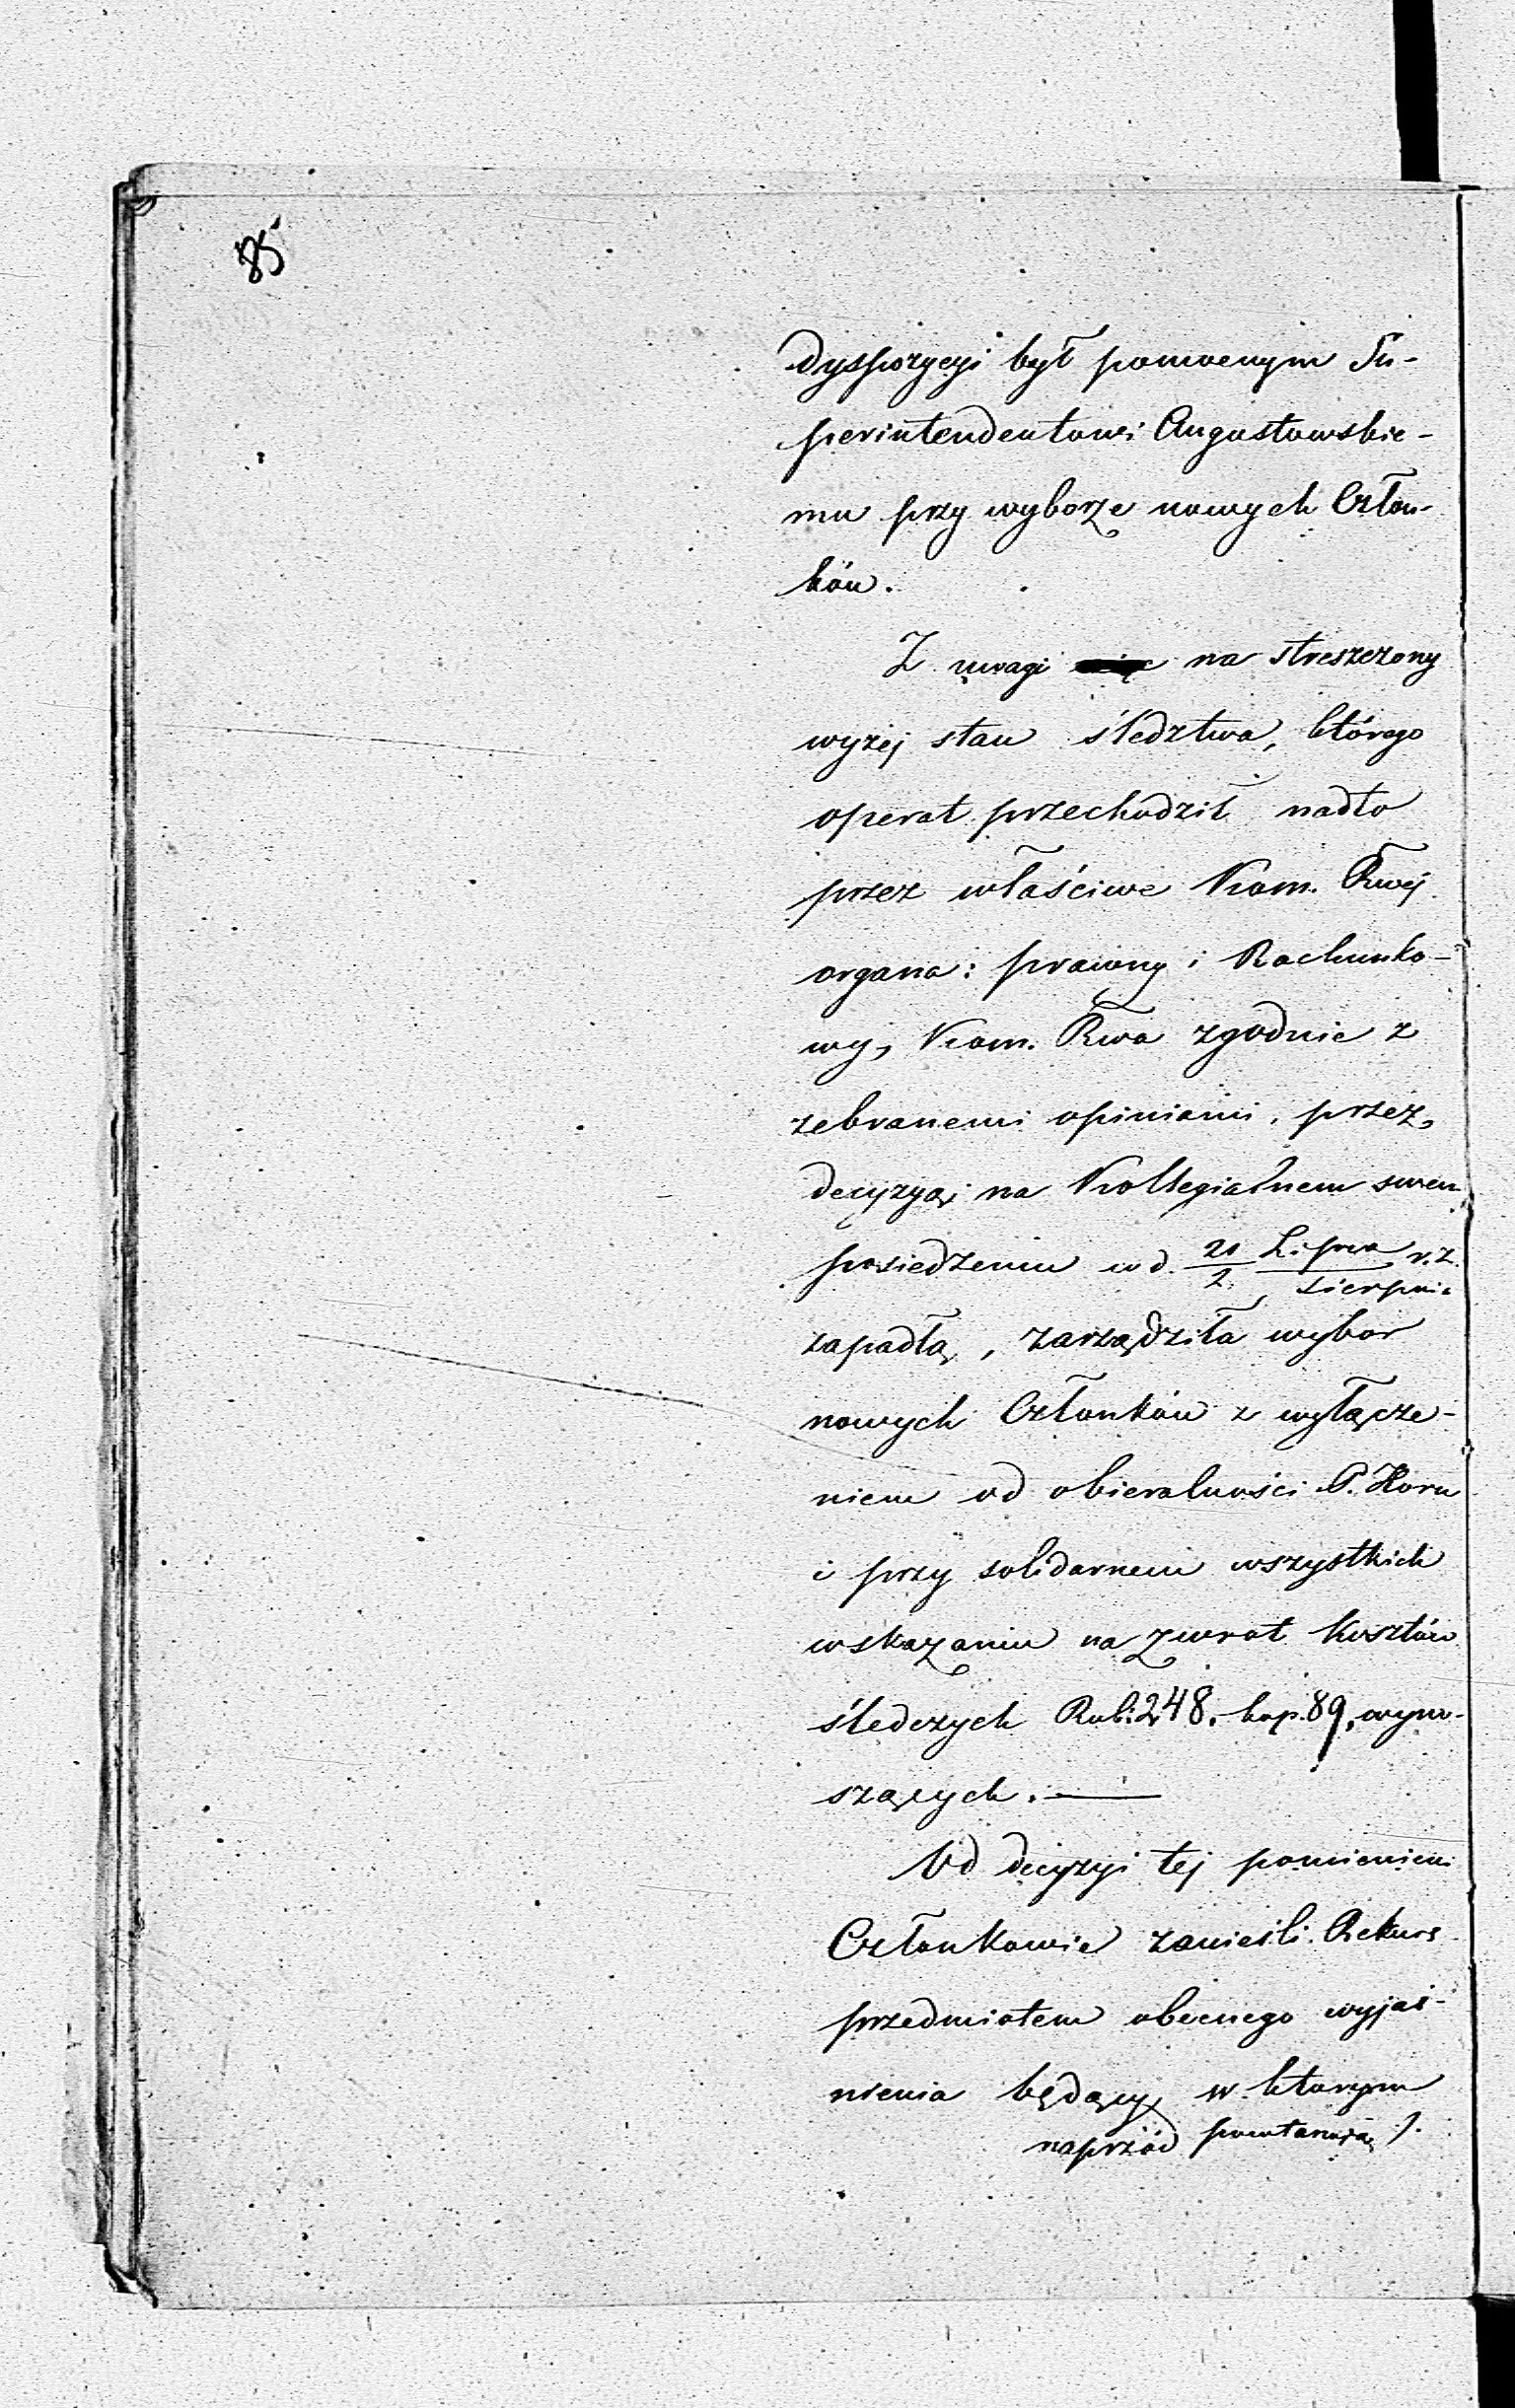 85
dyspozycyi był pomocnym Su-
perintendentowi Augustowskie-
mu przy wyborze nowych Człon-
ków.
Z uwagi na streszczony
wyżej stan śledztwa, którego
operat przechodził nadto
przez właściwe Kom. Rwej
organa: prawny i Rachunko-
wy, Kom. Rwa zgodnie z
zebranemi opiniami, przez
decyzyą na Kollegialnem swem
posiedzeniu w d. 21/2 Lipca/Sierpnia r. z.
zapadłą, zarządziła wybor
nowych Członków z wyłącze-
niem od obieralności P. Horn
i przy solidarnem wszystkich
wskazaniu na zwrot kosztów
śledczych Rub: 248. kop. 89, wyno-
szących. —
Od decyzyi tej pomienieni
Członkowie zanieśli Rekurs
przedmiotem obecnego wyjaś-
nienia będący, w którym
naprzód